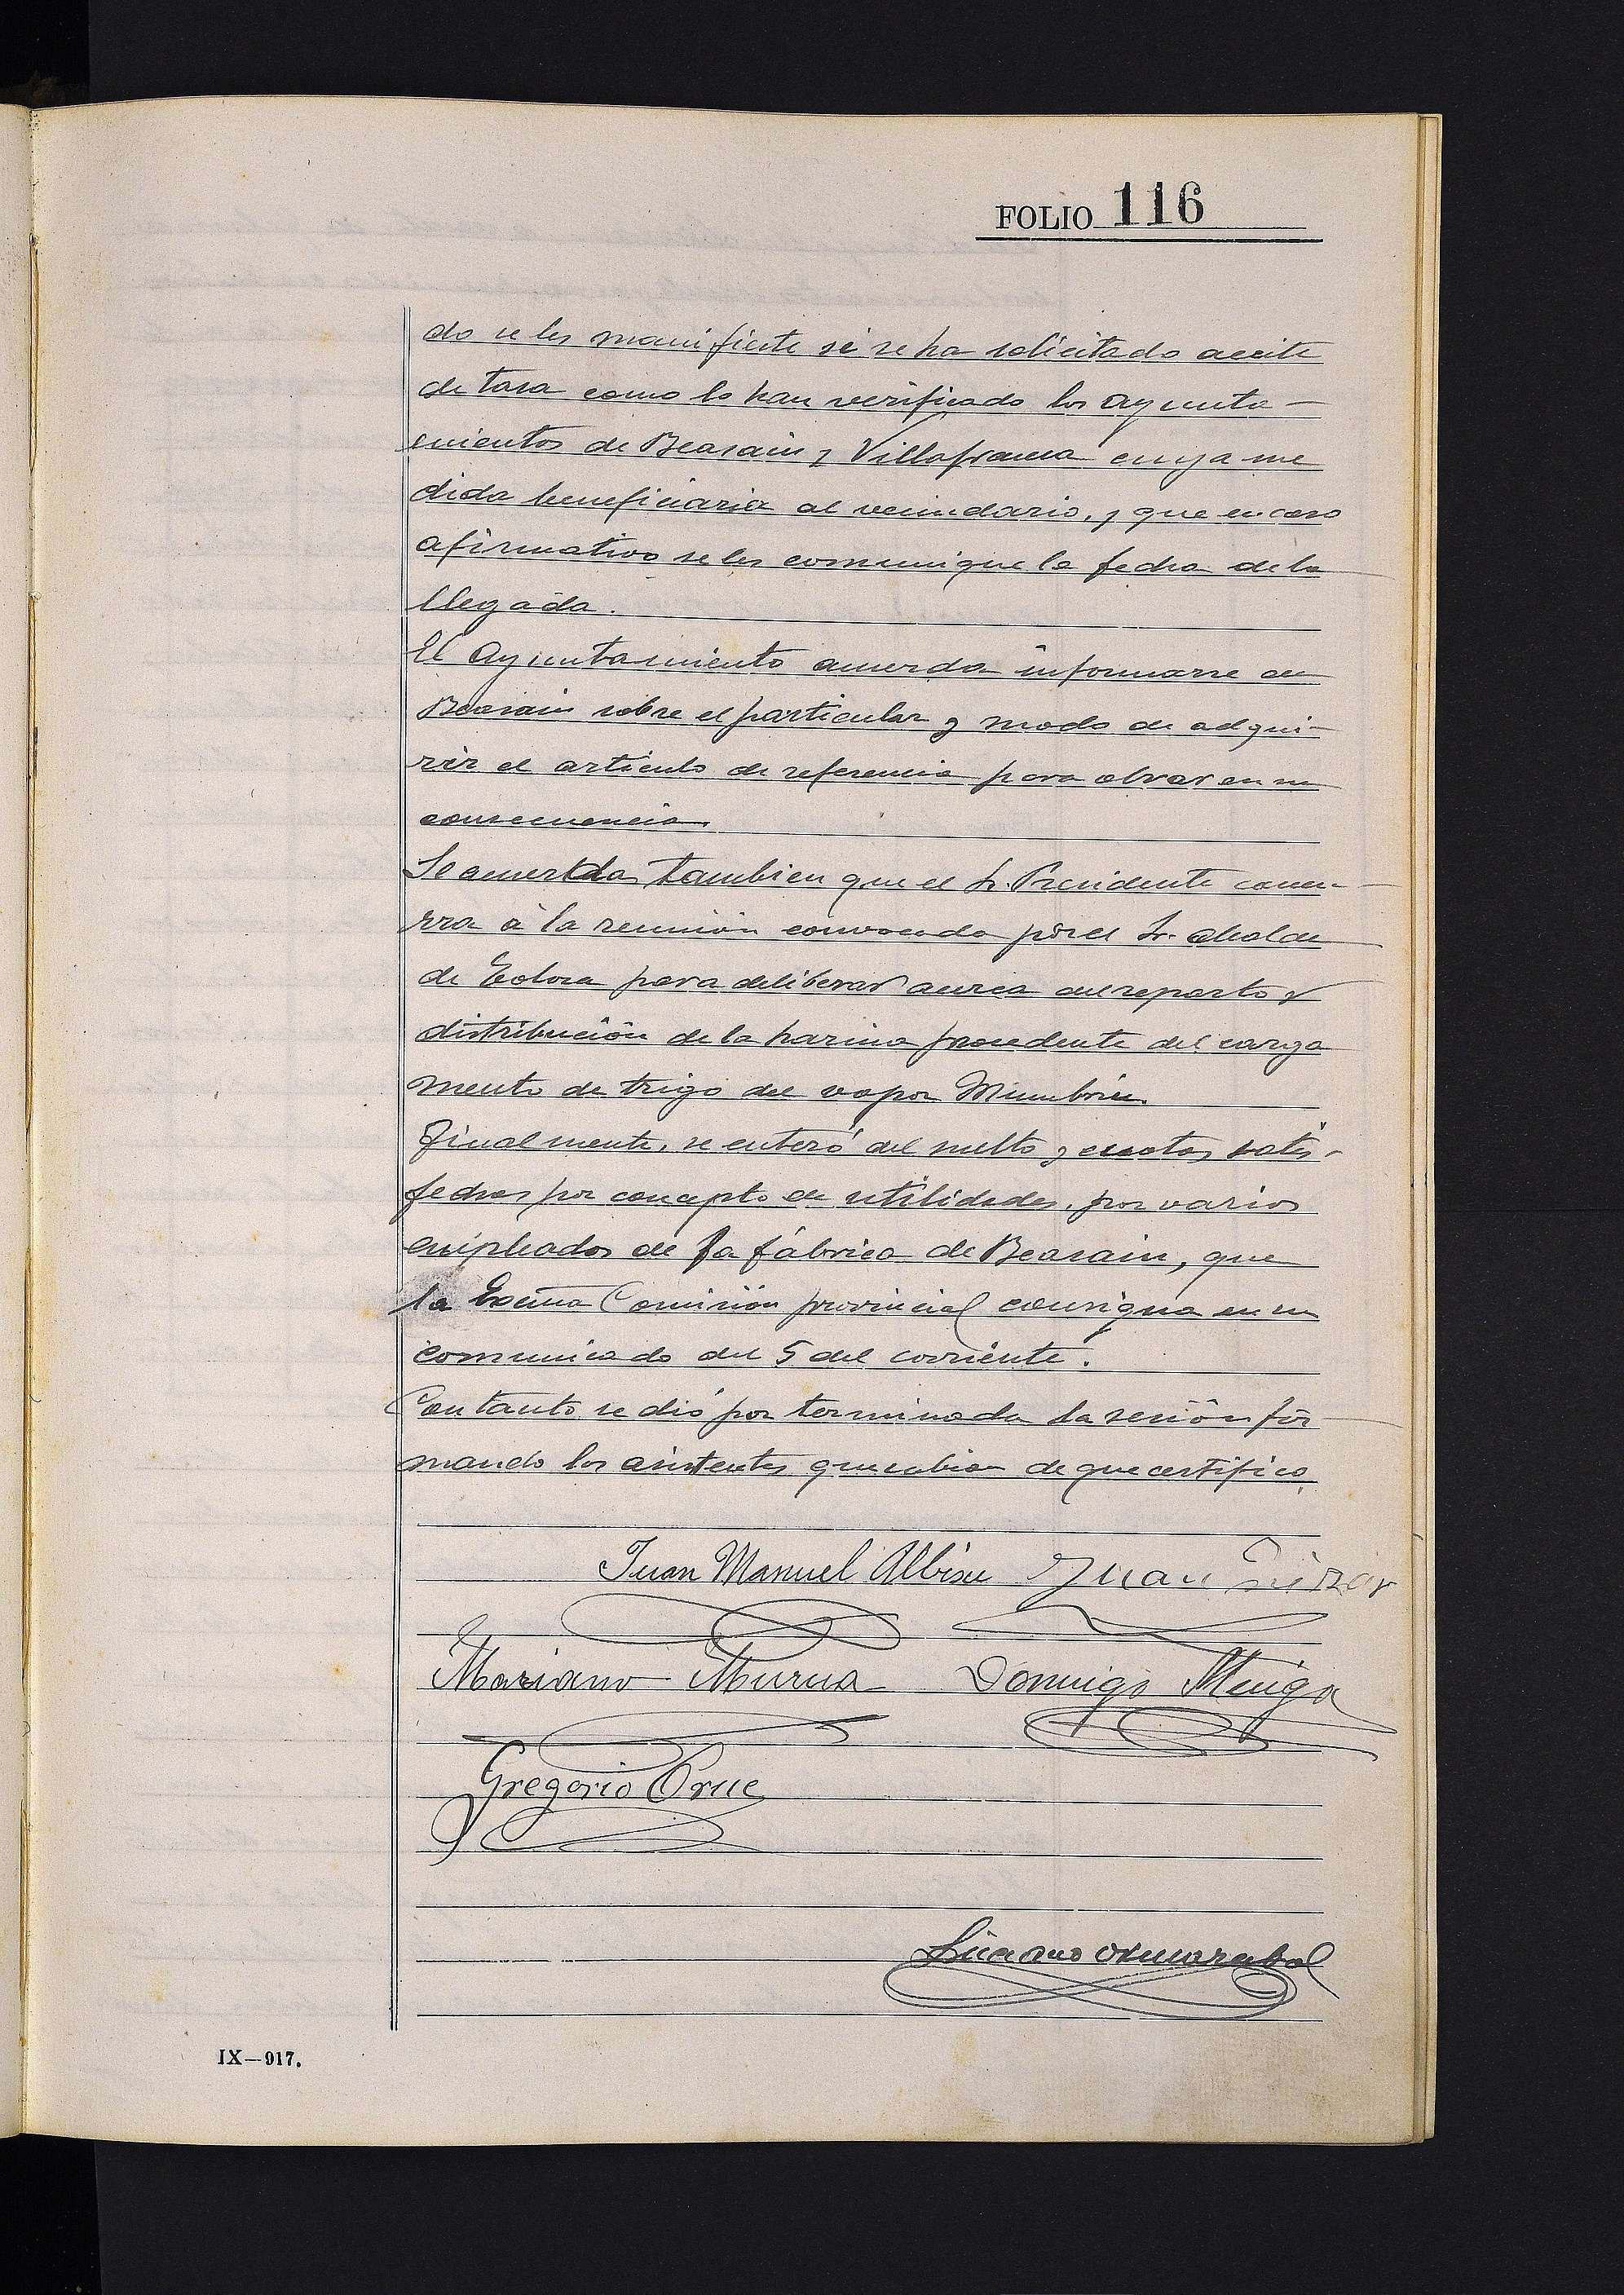 FOLIO 116
do se les manifieste si se ha solicitado aceite
de tasa como lo han verificado los Ayunta-
mientos de Beasain y Villafranca cuya me
dida beneficiaria al vecindario, y que en caso
afirmativo se les comunique la fecha de la
llegada.
El Ayuntamiento acuerda informarse de
Beasain sobre el particular y modo de adqui-
rir el articulo de referencia para obrar en su
consecuencia.
Se acuerda tambien que el Sr. Presidente concu-
rra á la reunión convocada por el Sr. Alcalde
de Tolosa para deliberar acerca del reparto y
distribución de la harina procedente del carga
mento de trigo del vapor
Finalmente, se enteró del suelto y cuotas satis-
fechas por concepto de utilidades, por varios
empleados de la fábrica de Beasain, que
la Excma Comisión provincial consigna en su
comunicado del 5 del corriente.
Con tanto se dió por terminada la sesión fir
mando los asistentes que sabian de que certifico.
Juan Manuel Albisu Juan
Mariano Murua Domingo
Gregorio Orue
Luciano
IX—917.